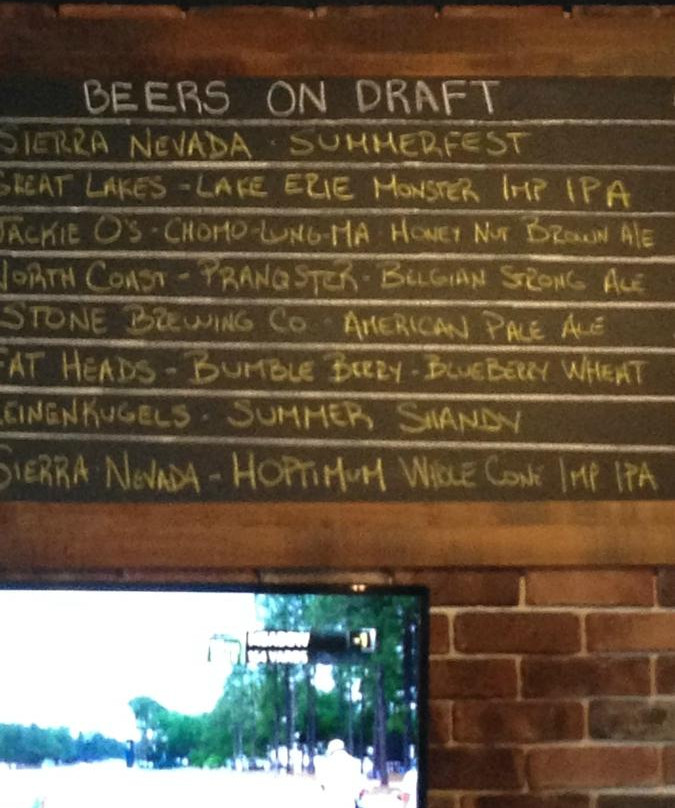 BEERS ON DRAFT
SIERRA NEVADA · SUMMERFEST
GREAT LAKES - LAKE ERIE MONSTER IMP IPA
JACKIE O'S - CHOMO-LUNG-MA HONEY NUT BROWN ALE
NORTH COAST - PRANQSTER - BELGIAN STRONG ALE
STONE BREWING CO · AMERICAN PALE ALE
FAT HEADS - BUMBLE BERRY - BLUEBERRY WHEAT
LEINENKUGELS · SUMMER SHANDY
SIERRA NEVADA - HOPTIMUM WHOLE CONE IMP IPA